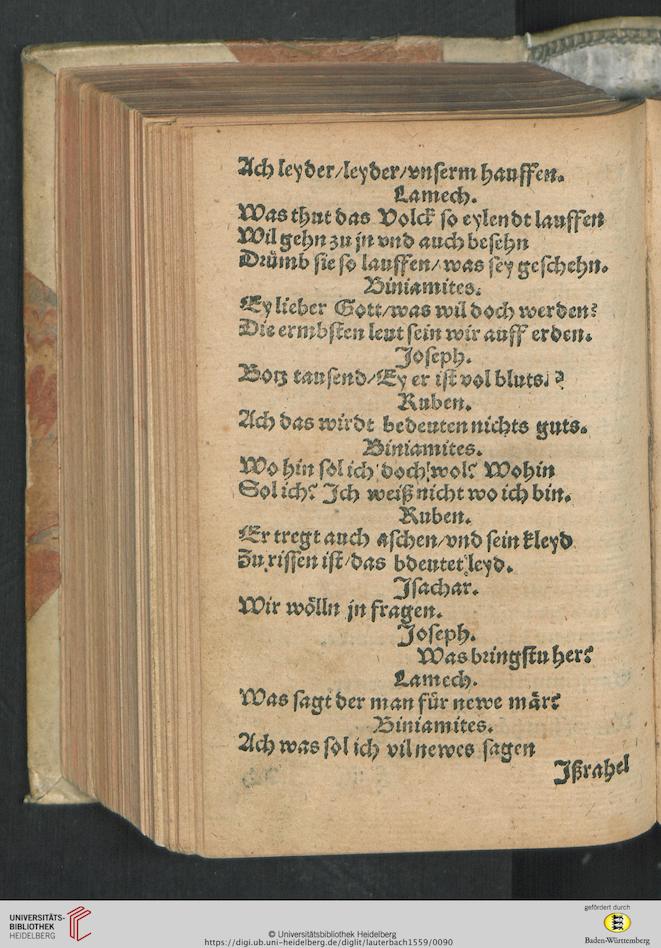 Ach leyder/leyder/vnserm hauffen.
Lamech.
Was thut das Volck so eylendt lauffen
Wil gehn zu jn vnd auch besehn
Drümb sie so lauffen/ was sey geschehn.
Biniamites.
Ey lieber Gott/was wil doch werden?
Die ermbsten leut sein wir auff erden.
Joseph.
Botz tausend/Ey er ist vol bluts. ?
Ruben.
Ach das wirdt bedeuten nichts guts.
Biniamites.
Wo hin sol ich doch wol? Wohin
Sol ich? Ich weiß nicht wo ich bin.
Ruben.
Er tregt auch aschen/vnd sein kleyd
Zu rissen ist/das bdeutet leyd.
Isachar.
Wir wölln jn fragen.
Joseph.
Was bringstu her?
Lamech.
Was sagt der man für newe mär?
Biniamites.
Ach was sol ich vil newes sagen
Ißrahel
UNIVERSITÄTS-
BIBLIOTHEK
HEIDELBERG
© Universitätsbibliothek Heidelberg
https://digi.ub.uni-heidelberg.de/diglit/lauterbach1559/0090
gefördert durch
Baden-Württemberg